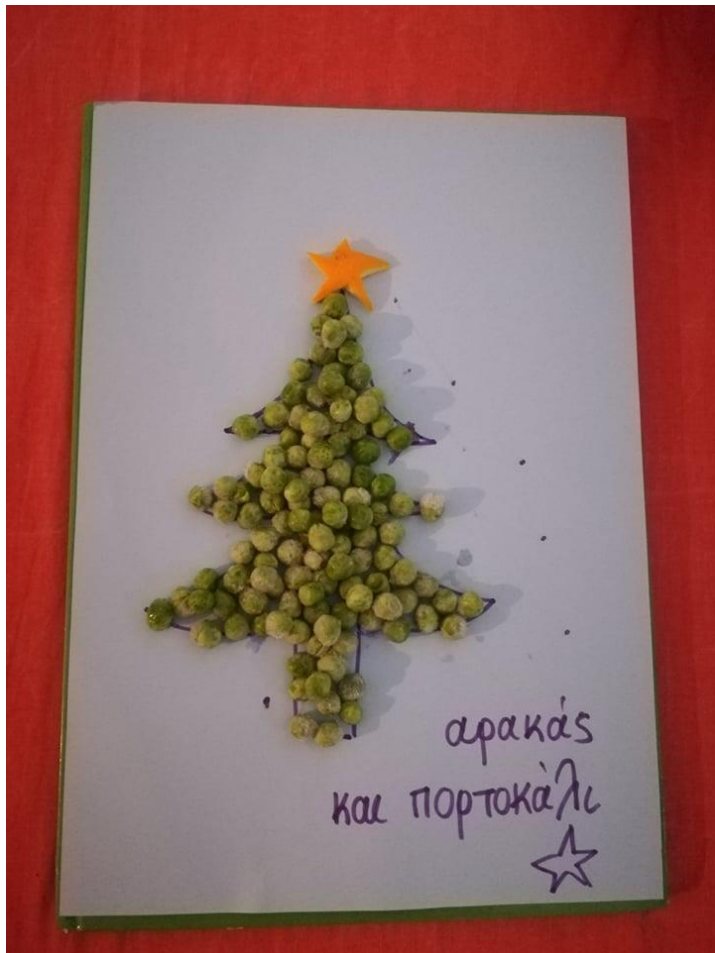 αρακάς
και πορτοκάλι